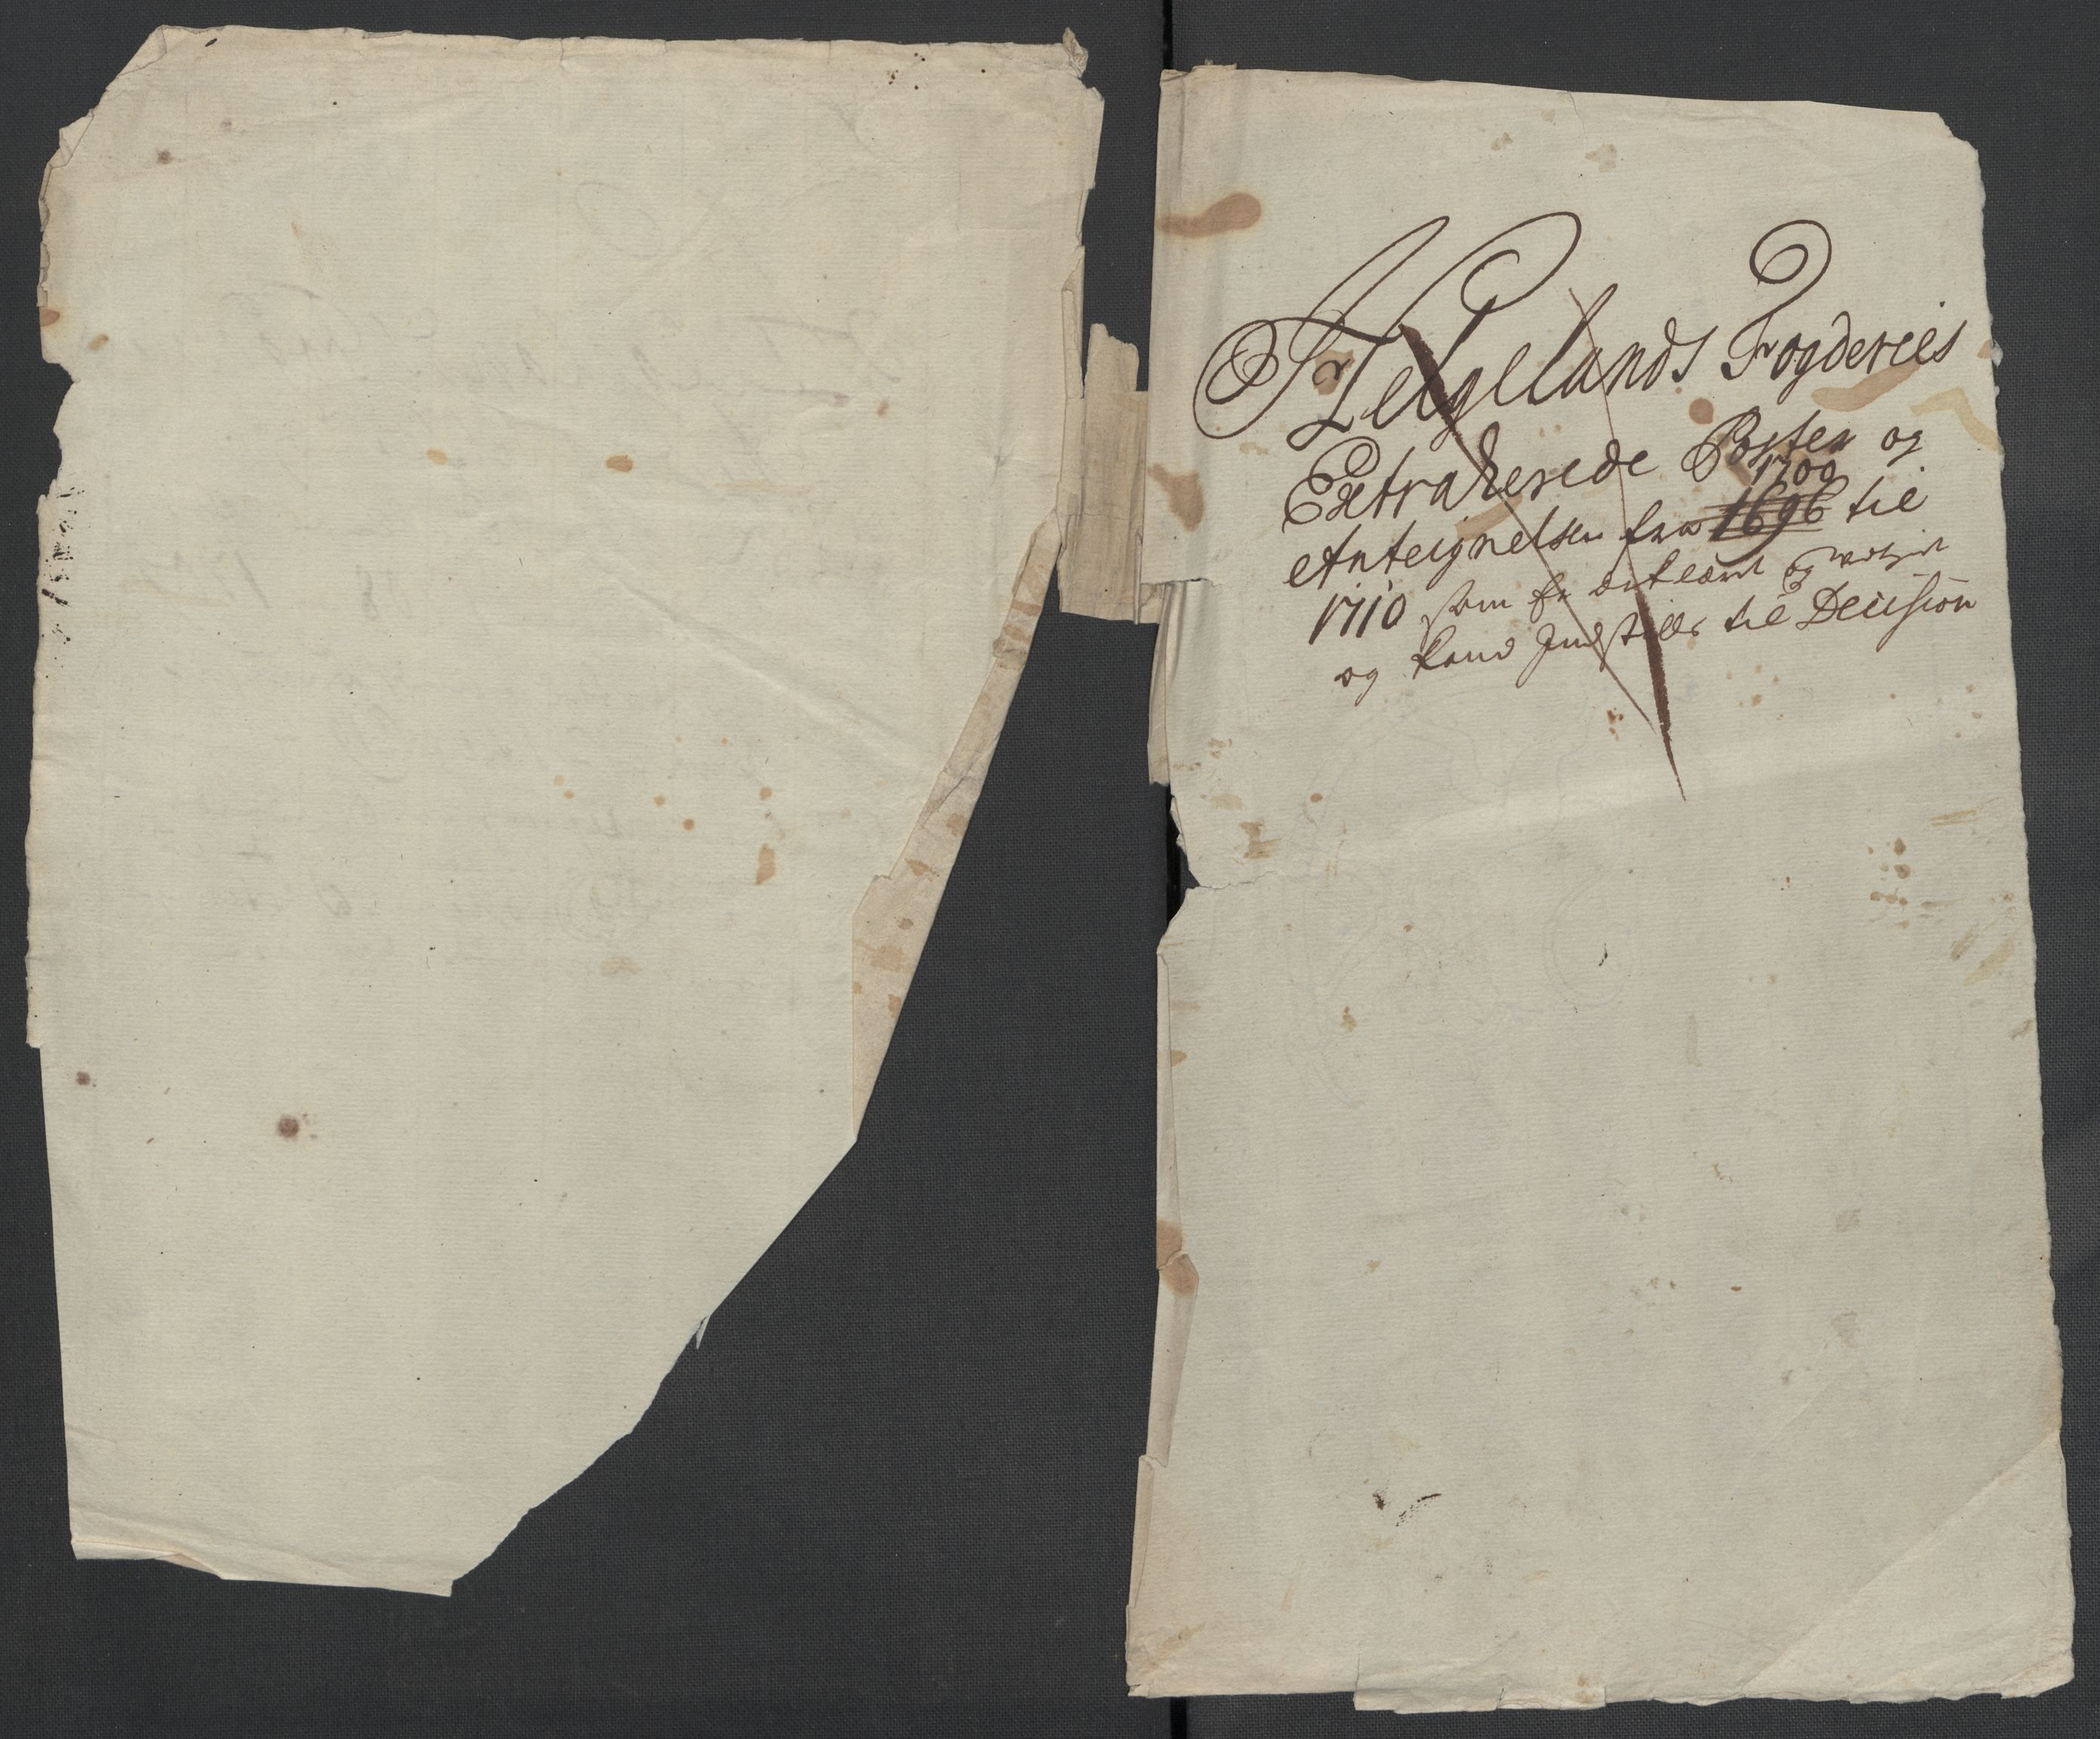 Helgelands Fogderies
Extraherede Poster og
Anteignelser fra 1700 1696 til
1710 som er erklæret og
og kand Indstilles til Decision